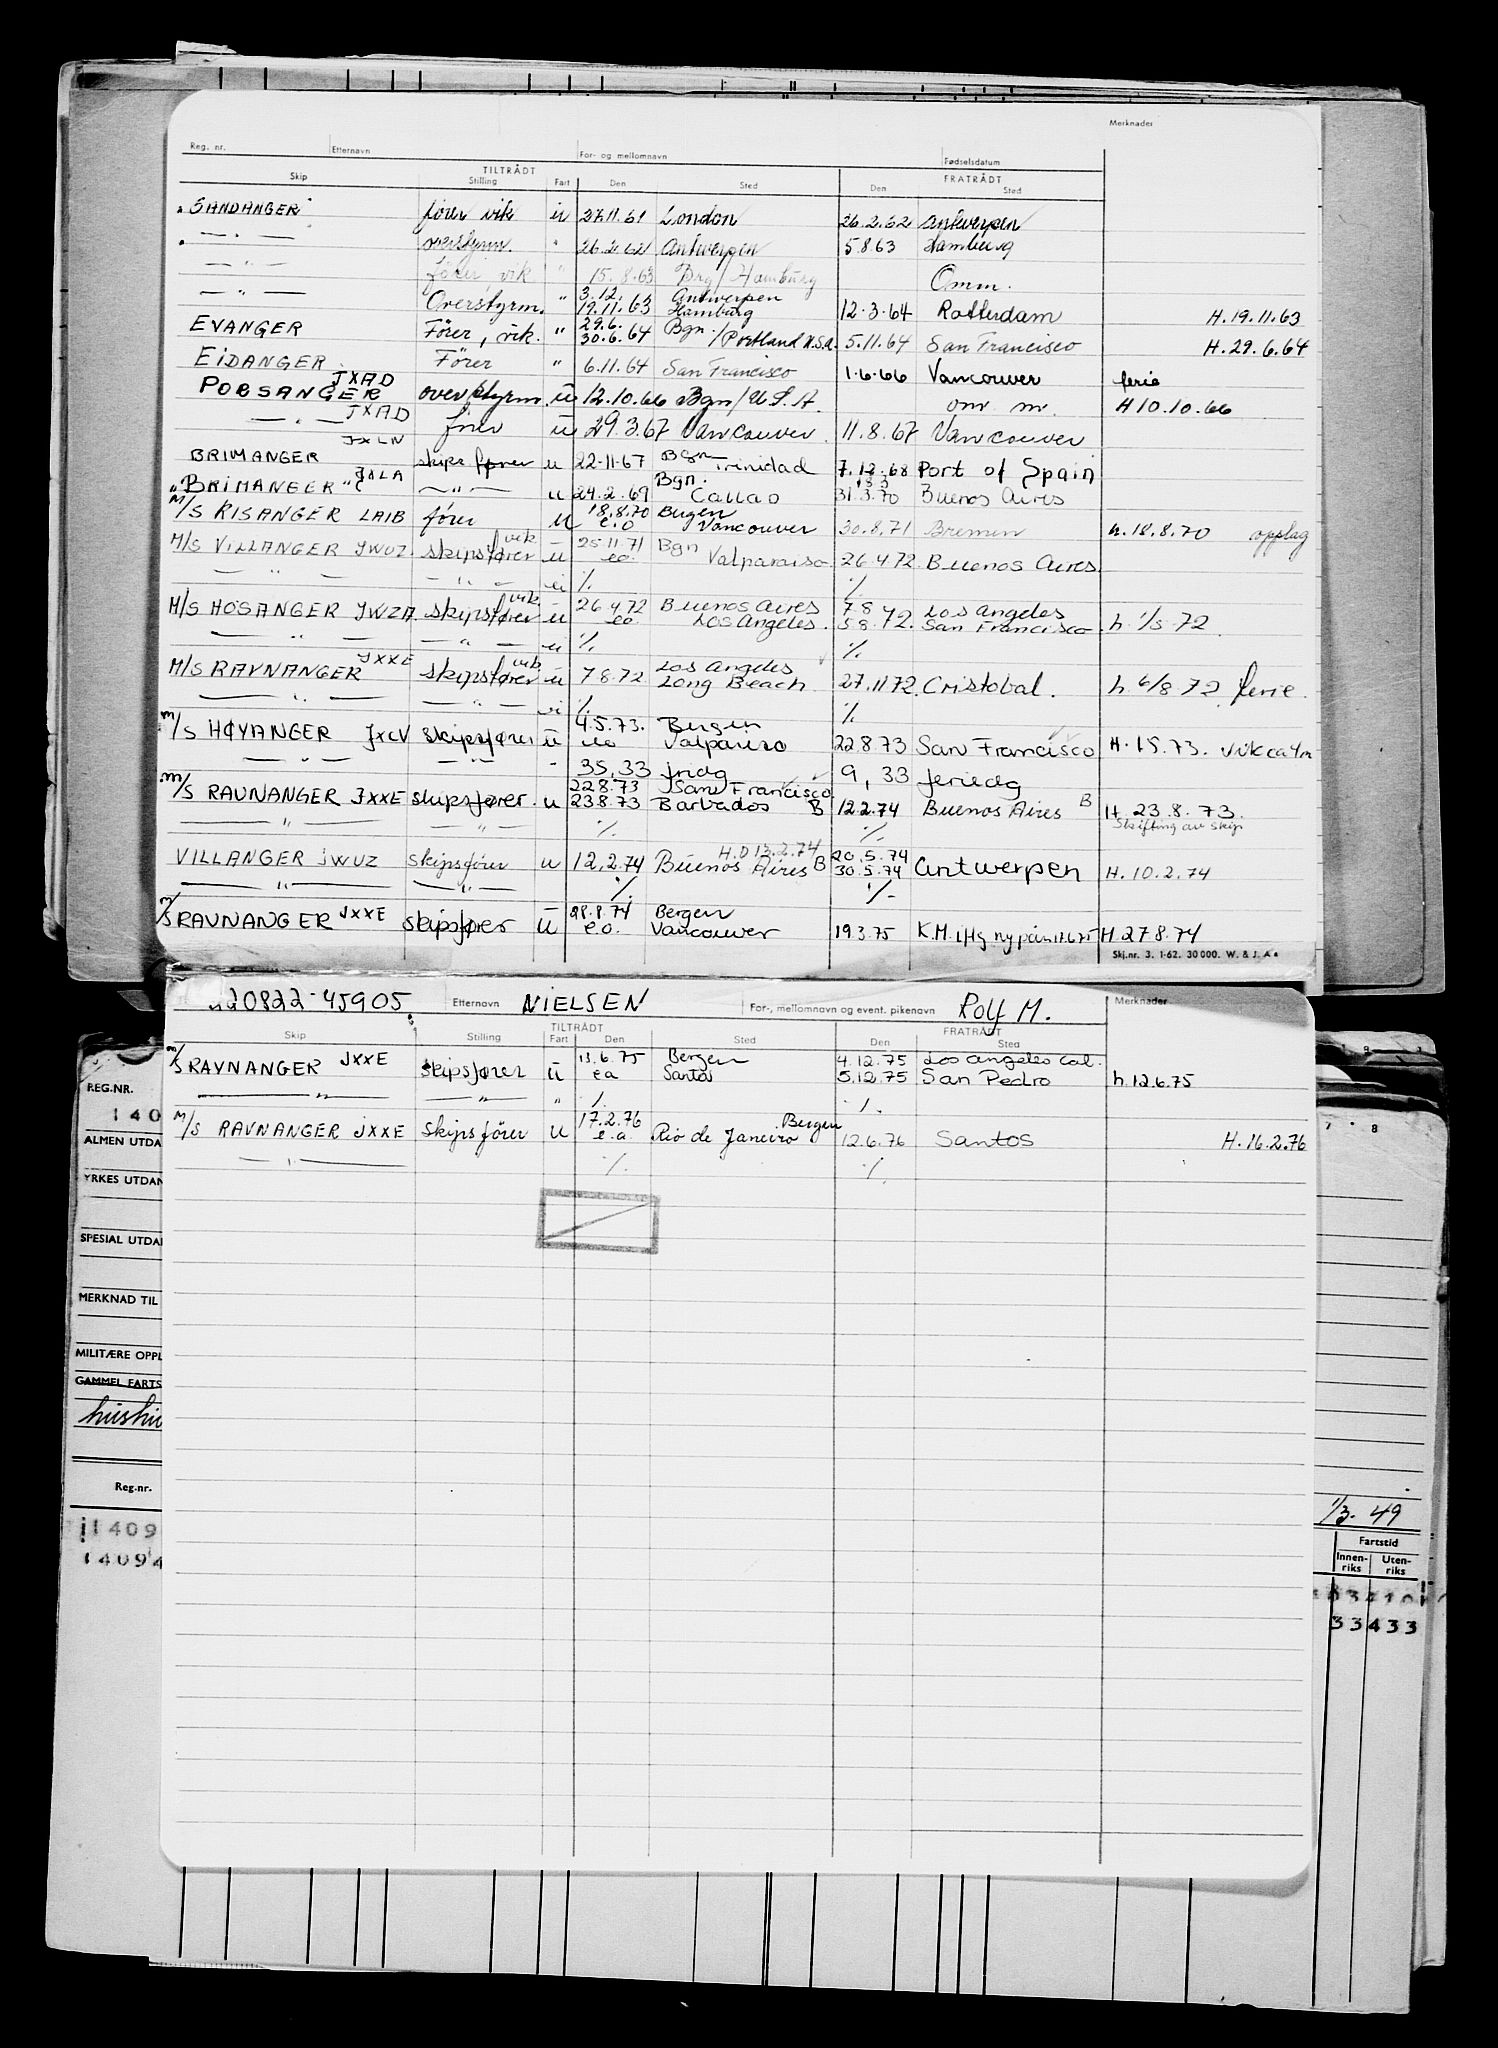 Merknader
Reg. nr. Etternavn For- og mellomnavn Fødselsdatum
TILTRÅDT FRATRÅDT
Skip Stilling Fart Den Sted Den Sted
"SANDANGER" fører vik u 27.11.61 London 26.2.62 Antwerpen
" — " — overstyrm. " 26.2.62 Antwerpen 5.8.63 Hamburg
— " — fører vik " 15.8.63 Brg / Hamburg Omm.
— " — Overstyrm. " 3.12. 19.11.63 Antwerpen Hamburg 12.3.64 Rotterdam H.19.11.63
EVANGER Fører, vik. " 29.6. 30.6.64 Bgn. / Portland U.S.A. 5.11.64 San Francisco H.29.6.64
EIDANGER Fører " 6.11.64 San Francisco 1.6.66 Vancouver ferie
PORSANGER JXAD overstyrm. u 12.10.66 Bgn / U.S.A. om m. H 10.10.66
— " — JXAD fører u 29.3.67 Vancouver. 11.8.67 Vancouver
BRIMANGER JXLN skipsfører u 22.11.67 Bgn Trinidad 7.12.68 Port of Spain
"BRIMANGER" skips — " — u 24.2.69 Bgn. Callao 31.3.70 Buenos Aires
M/S RISANGER LAIB fører u 18.8.70 e.o Bergen Vancouver 30.8.71 Bremen h.18.8.70 opplag
M/S VILLANGER JWUZ skipsfører vik u 25.11.71 eo. Bgn Valparaiso 26.4.72 Buenos Aires
— " — — " — u % %
M/S HØSANGER JWZA skipsfører vik u 26.4.72 eo. Buenos Aires Los Angeles. 7.8 5.8.72. Los Angeles San Francisco h. 1/5 72
— " — — " — u % %
M/S RAVNANGER JXXE skipsfører vik u 7.8.72 Los Angeles Long Beach 27.11.72 Cristobal. h. 6/8 72 ferie.
— " — — " — u % %
M/S HØYANGER JXCV skipsfører u 4.5.73. eo Bergen Valpariso 22.8.73 San Francisco H. 1.5.73. vik ca 4m
— " — — " — " 35,33 fridg 9,33 feriedg
M/S RAVNANGER JXXE skipsfører. u 22.8.73 23.8.73 San Francisco Barbados B 12.2.74 Buenos Aires B H. 23.8.73.
Skifting av skip
— " — — " — % %
VILLANGER JWUZ skipsfører u 12.2.74 H.D 13.2.74 Buenos Aires B 20.5.74 30.5.74 Antwerpen H. 10.2.74
— " — — " — % %
M/S RAVNANGER JXXE skipsfører u 28.8.74 e.o. Bergen Vancouver 19.3.75 K.M. H 27.8.74
Skj.nr. 3. 1-62. 30 000. W. & J. A.
220822-45905. Etternavn NIELSEN For-, mellomnavn og event. pikenavn Rolf M. Merknader
TILTRÅDT FRATRÅDT
Skip Stilling Fart Den Sted Den Sted
M/S RAVNANGER JXXE skipsfører u 13.6.75 ea Bergen Santos 4.12.75 5.12.75 Los Angeles Cal. San Pedro h. 12.6.75
— " — — " — " % %
M/S RAVNANGER JXXE skipsfører u 17.2.76 e.a. Bergen Rio de Janeiro 12.6.76 Santos H. 16.2.76
— " — % %
REG.NR.
140
ALMEN UTDA
YRKES UTDAN
SPESIAL UTDA
MERKNAD TIL
MILITÆRE OPPL
GAMMEL FARTS
hushu
Reg.nr.
11409
14094
7 · 8
1/3. 49
Fartstid
Innen-riks Uten-riks
33433